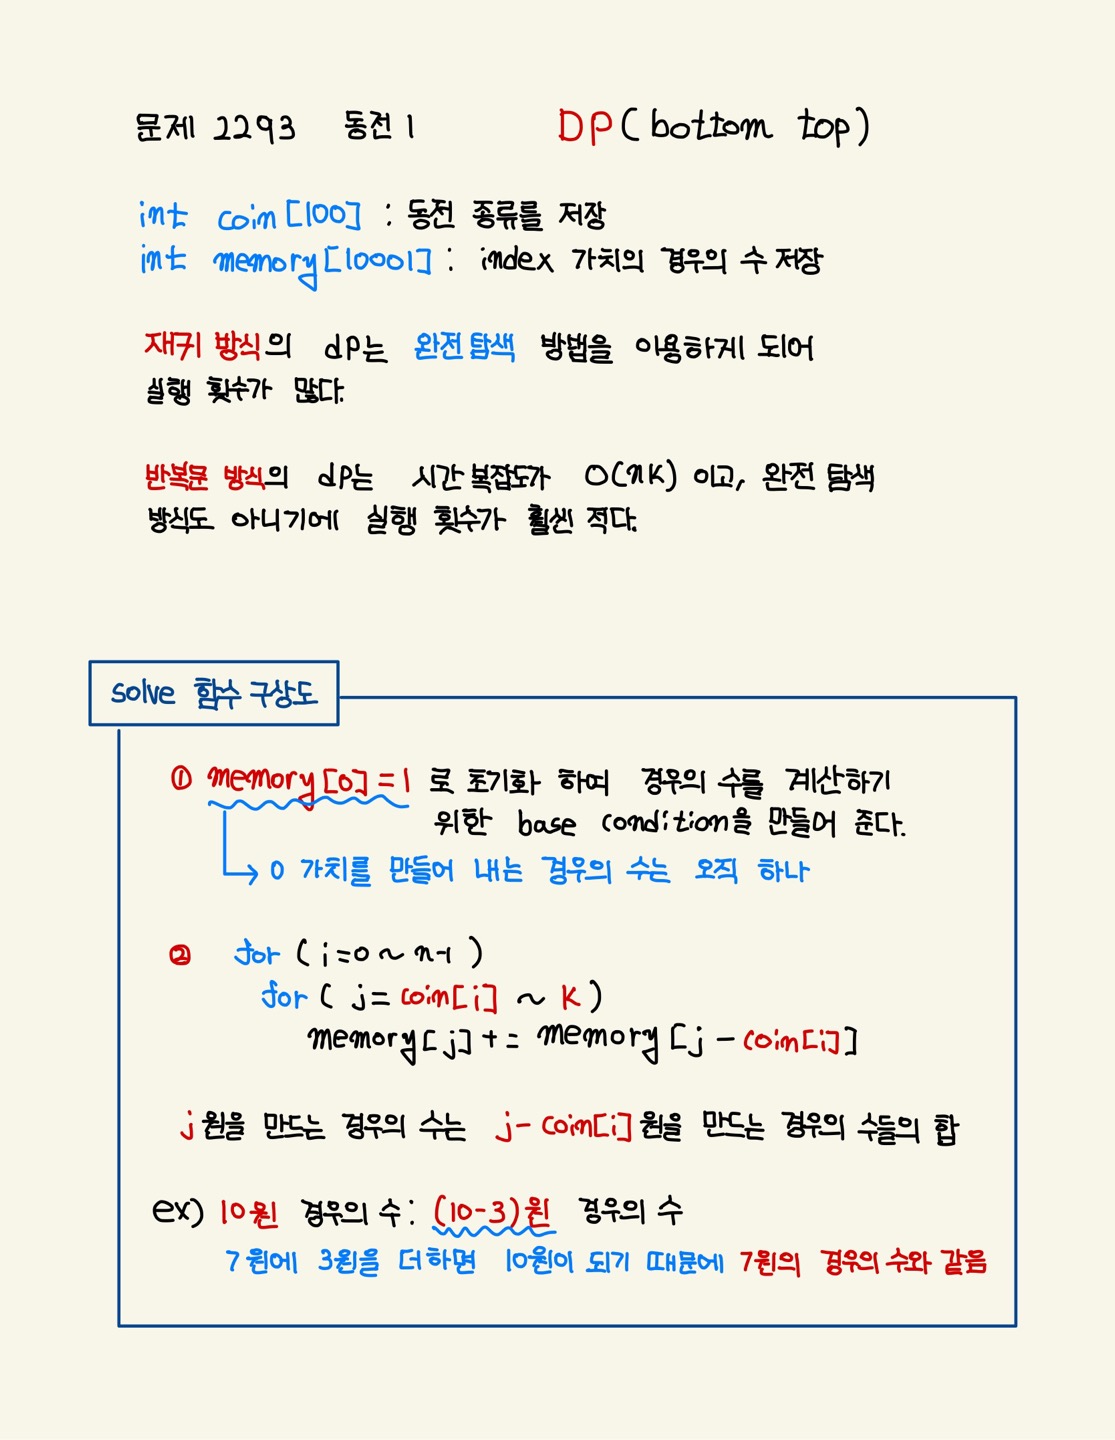 문제 2293 동전 1 DP(bottom top)
int coin[100] : 동전 종류를 저장
int memory[10001] : index 가치의 경우의 수 저장
재귀 방식의 dp는 완전탐색 방법을 이용하게 되어
실행 횟수가 많다.
반복문 방식의 dp는 시간 복잡도가 O(nK) 이고, 완전 탐색
방식도 아니기에 실행 횟수가 훨씬 적다.
solve 함수 구상도
① memory[0]=1 로 초기화 하여 경우의 수를 계산하기
위한 base condition을 만들어 준다.
→ 0 가치를 만들어 내는 경우의 수는 오직 하나
② for ( i=0 ~ n-1 )
for ( j= coin[i] ~ K )
memory[j] += memory[j - coin[i]]
j원을 만드는 경우의 수는 j-coin[i]원을 만드는 경우의 수들의 합
ex) 10원 경우의 수 : (10-3)원 경우의 수
7원에 3원을 더하면 10원이 되기 때문에 7원의 경우의 수와 같음